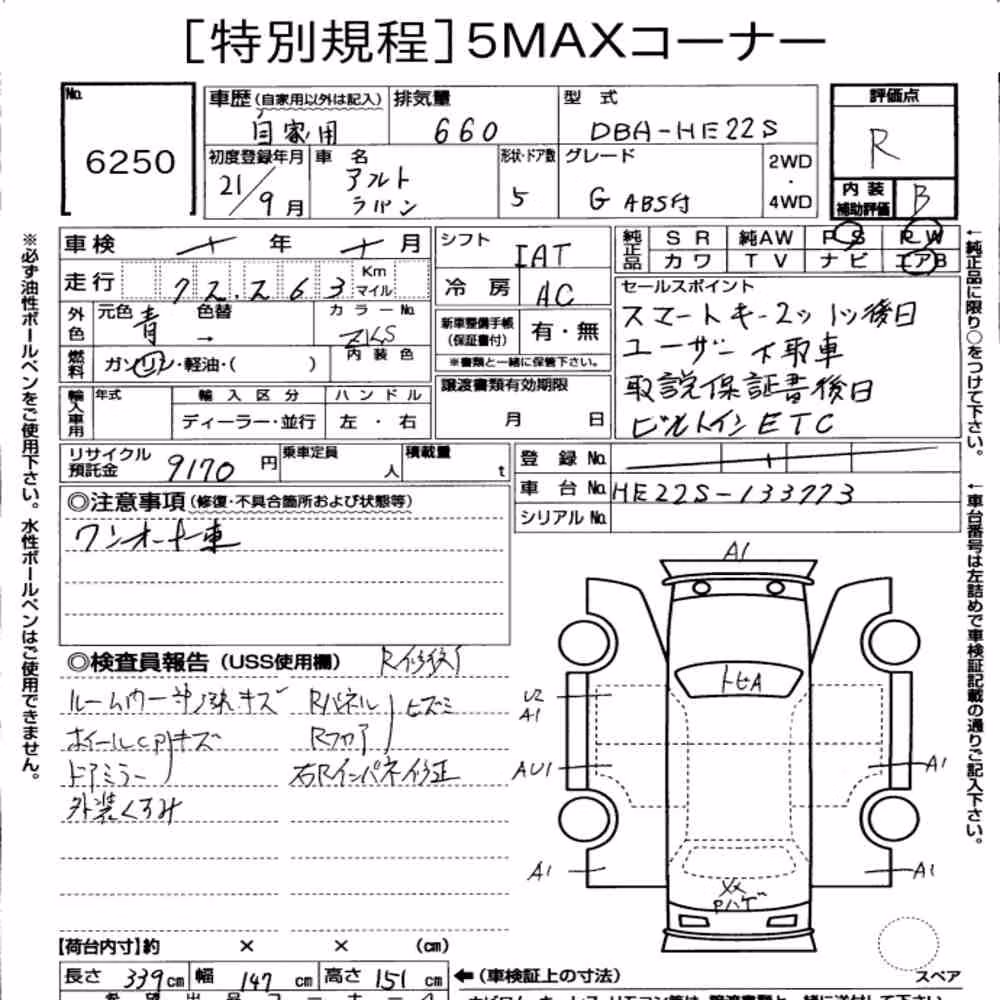 [特別規程]5MAXコーナー
No. 6250
車歴(自家用以外は記入) 自家用
排気量 660
型式 DBA-HE22S
評価点 R
初度登録年月 21/9月
車名 アルト ラパン
形状・ドア数 5
グレード G ABS付
2WD・4WD
内装補助評価 B
車検 年 月
シフト IAT
純正品 SR 純AW PS PW
カワ TV ナビ エアB
走行 72,263 Km マイル
冷房 AC
セールスポイント
スマートキー2ッ1ッ後日
ユーザー下取車
取説保証書後日
ビルトインETC
外色 元色 青 色替 →
カラーNo. ZKS
新車整備手帳(保証書付) 有・無
※書類と一緒に保管下さい。
燃料 ガソリン・軽油・( )
内装色
譲渡書類有効期限
月 日
輸入車用 年式 輸入区分 ハンドル
ディーラー・並行 左・右
リサイクル預託金 9170円
乗車定員 人
積載量 t
登録No.
車台No. HE22S-133773
シリアルNo.
◎注意事項(修復・不具合箇所および状態等)
ワンオーナー車
◎検査員報告(USS使用欄)
ルームウー
キズ
Rパネル
ヒズミ
ホイールCP
キズ
Rフロア
ドアミラー
右Rインパネ修正
外装くすみ
A1
トビA
U2
A1
AU1
A1
A1
A1
XX
Pハゲ
スペア
【荷台内寸】約 × × (cm)
長さ 339cm 幅 147cm 高さ 151cm
←(車検証上の寸法)
※必ず油性ボールペンをご使用下さい。水性ボールペンはご使用できません。
←純正品に限り○をつけて下さい。
←車台番号は左詰めで車検証記載の通りご記入下さい。